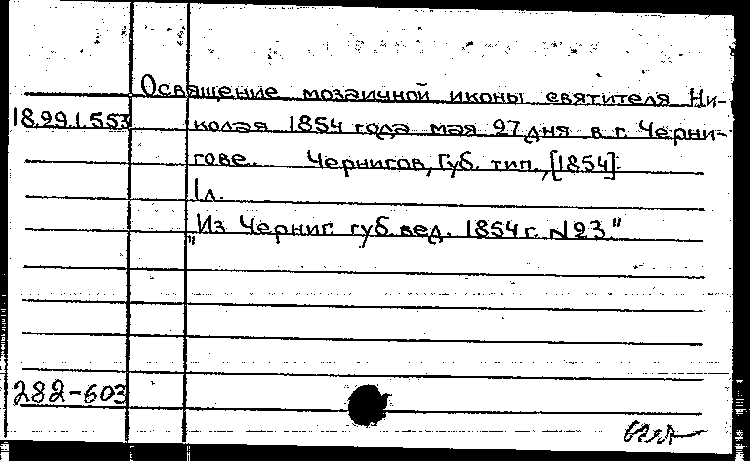 Освящение мозаичной иконы святителя Ни-
18.291.553 колая 1854 года мая 27 дня в г. Черни-
гове. Чернигов, Губ. тип., [1854].
1 л.
"Из Черниг. губ. вед. 1854 г. N 23."
282-603